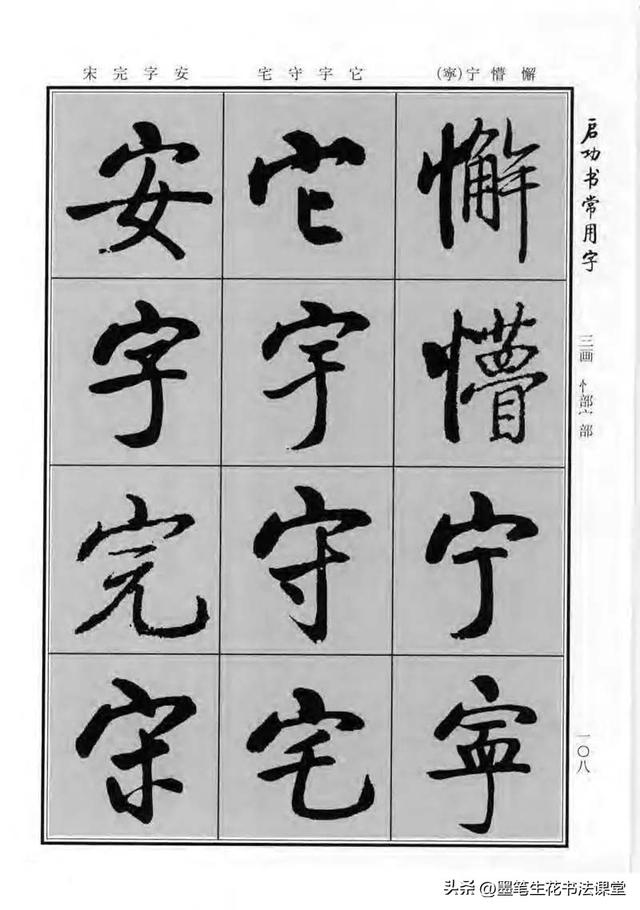 启功书常用字
三画 忄部 宀部
一〇八
懈 懵 宁(寧)
它 宇 守 宅
安 字 完 宋
懈
懵
宁
寧
它
宇
守
宅
安
字
完
宋
头条 @墨笔生花书法课堂